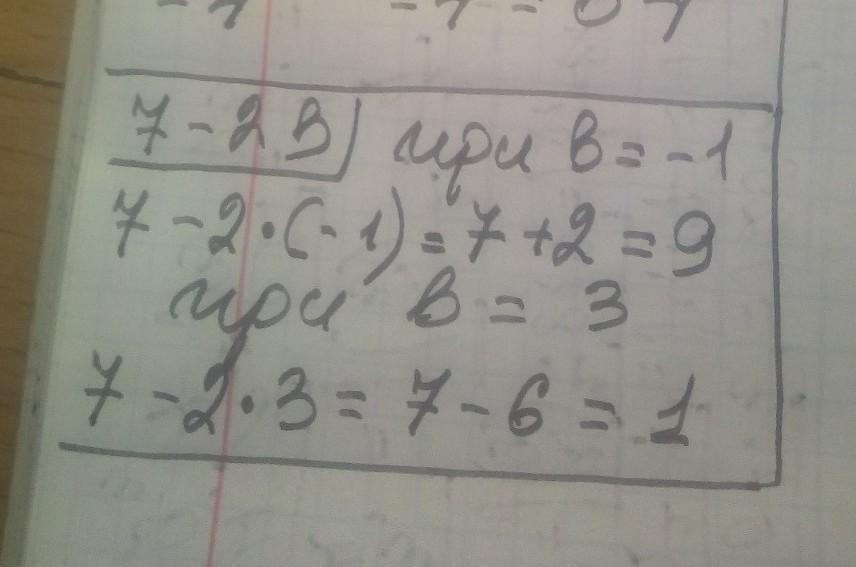 7 - 2в при в = -1
7 - 2·(-1) = 7 + 2 = 9
при в = 3
7 - 2·3 = 7 - 6 = 1